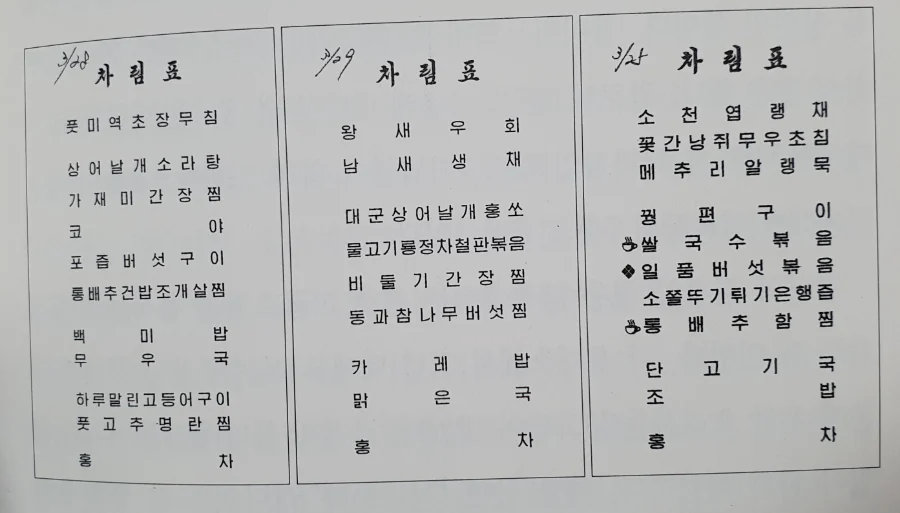 3/28
차림표
풋미역초장무침
상어날개소라탕
가재미간장찜
쿄야
포즙버섯구이
통배추건밥조개살찜
백미밥
무우국
하루말린고등어구이
풋고추명란찜
홍차
3/29
차림표
왕새우회
남새생채
대군상어날개홍쏘
물고기룡정차철판볶음
비둘기간장찜
동과참나무버섯찜
카레밥
맑은국
홍차
3/25
차림표
소천엽랭채
꽃간낭쥐무우초침
메추리알랭묵
꿩편구이
쌀국수볶음
일품버섯볶음
소쫄뚜기튀기은행즙
통배추함찜
단고기국
조밥
홍차